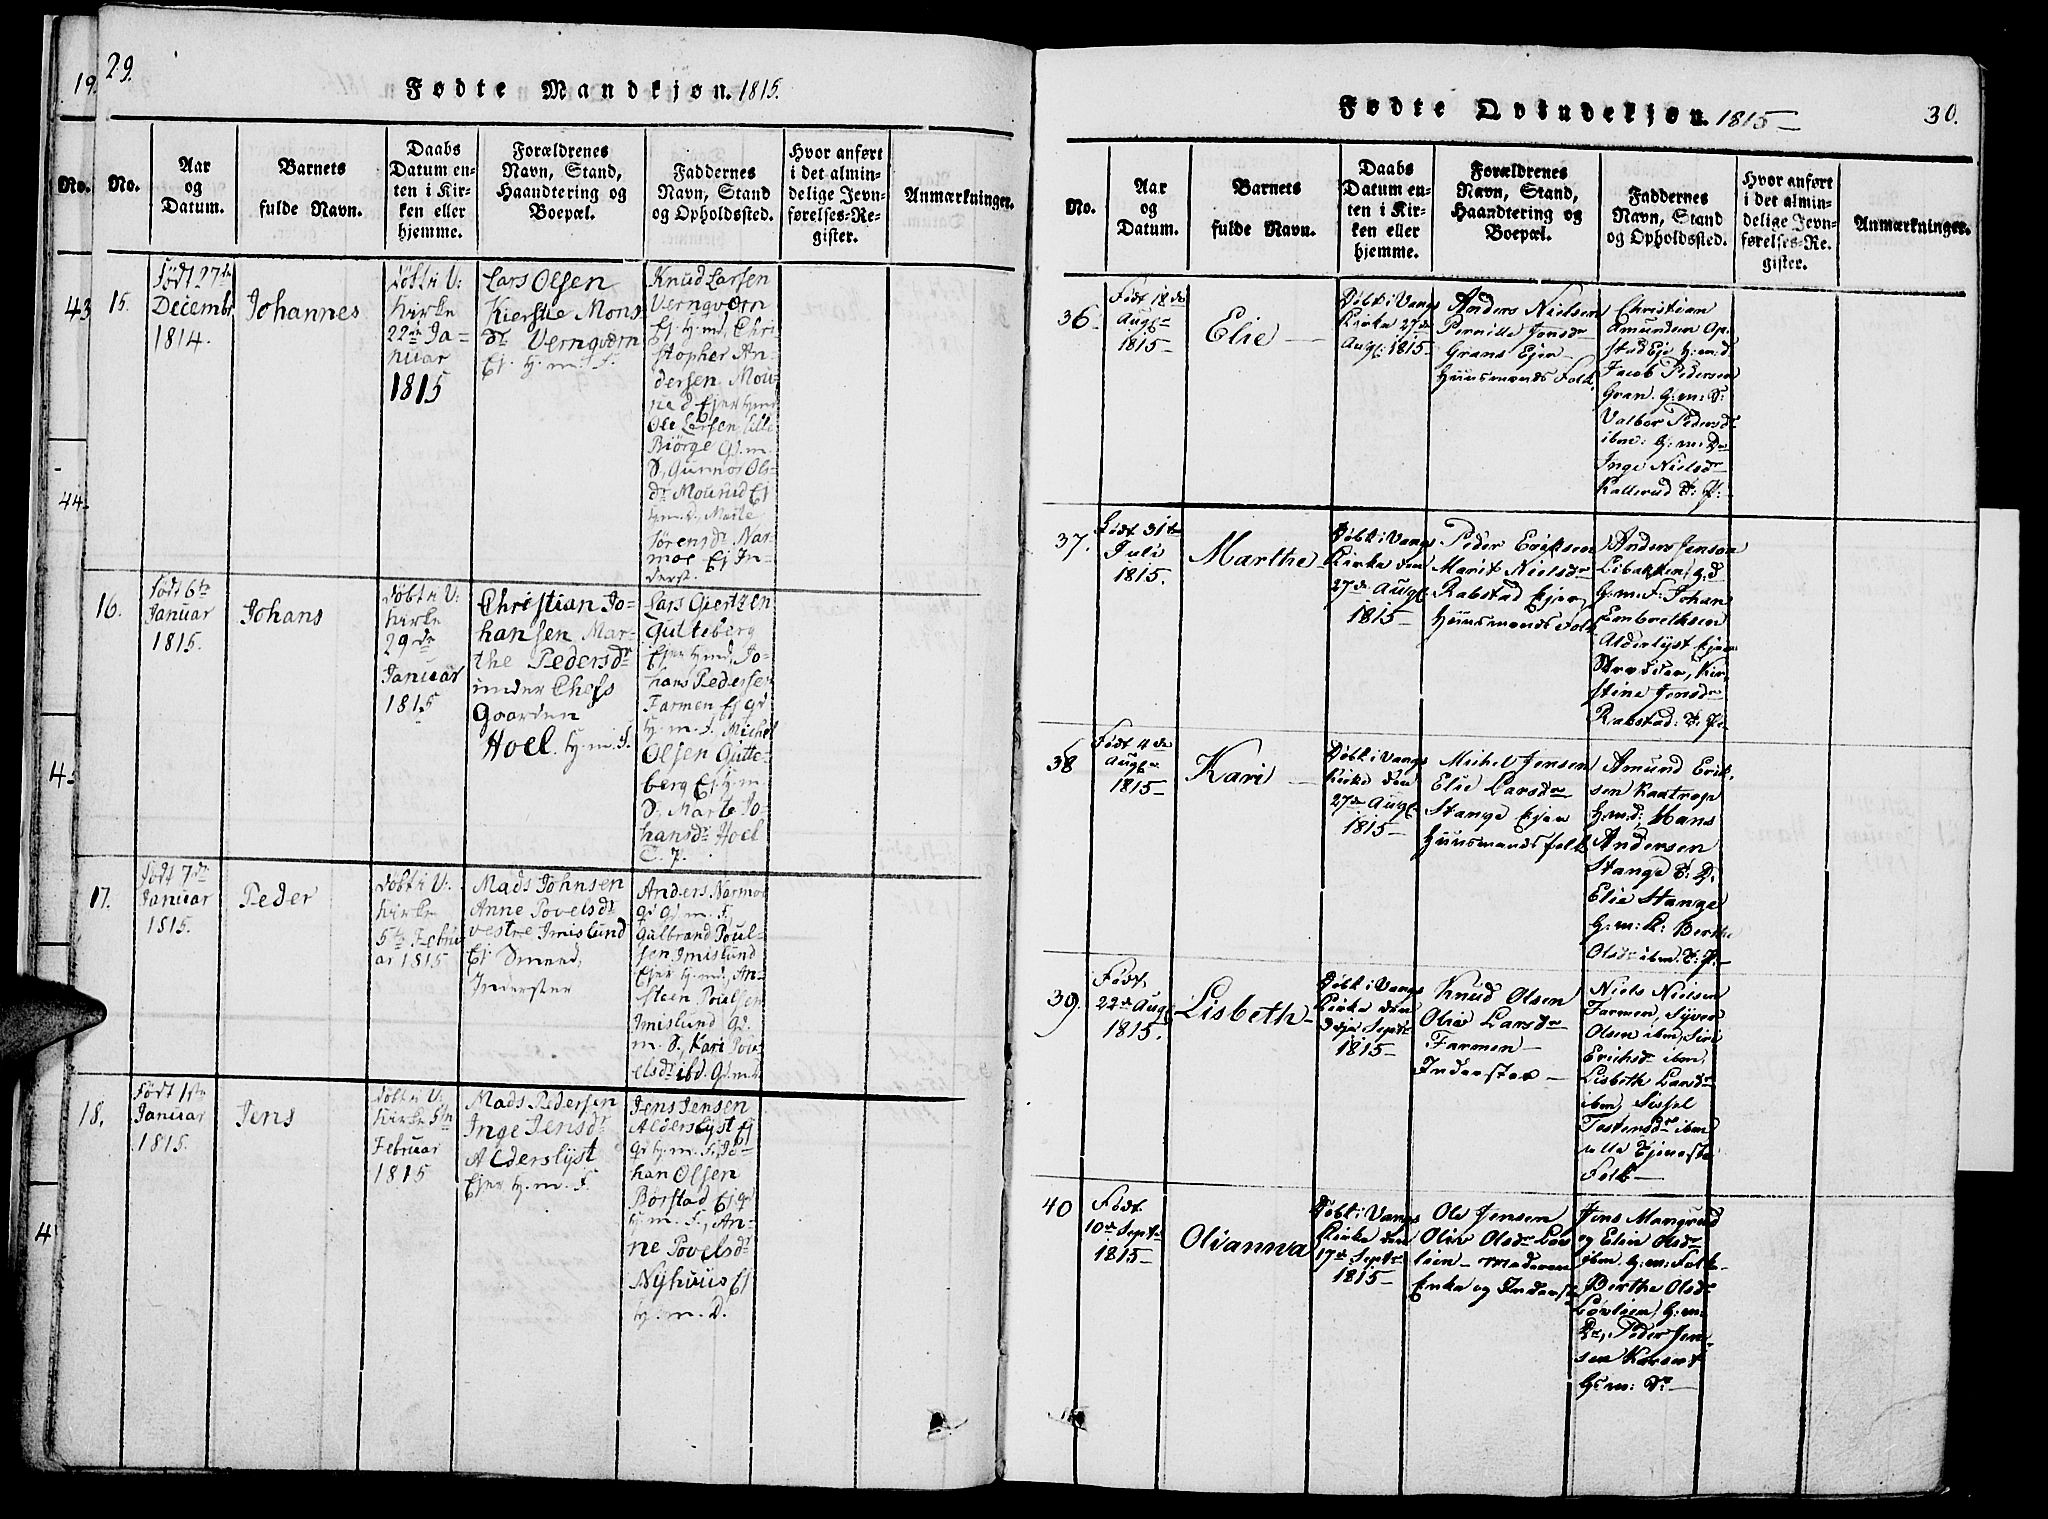 29.
Fødte Mandkjøn. 1815.
No.
Aar
og
Datum.
Barnets
fulde Navn.
Daabs
Datum en-
ten i Kir-
ken eller
hjemme.
Forældrenes
Navn, Stand,
Haandtering og
Boepæl.
Faddernes
Navn, Stand
og Opholdssted.
Hvor anført
i det almin-
delige Jevn-
førelses-Re-
gister.
Anmærkninger.
15.
Født 27de
Decembr
1814.
Johannes
Døbt i V:
Kirke
22de Ja=
nuar
1815
Lars Olsen
Kierstie Mons
dr Vernqvern
Ej. H. m. F.
Knud Larsen
Vernqvern
Ej H: md, Chri
stopher An=
dersen Mou=
rud Ejer Hmd
Ole Larsen Lille
Biørge G. m.
S., Gunnor Ols-
dr Mourud Ej
H. m. D., Marte
Sørensdr Nar=
moe Ej In=
derst.
16.
Født 6te
Januar
1815.
Johans
Døbt i V:
Kirke
29de
Januar
1815
Christian Jo=
hansen Mar=
the Pedersdr
under Chefs
Gaarden
Hoel. H. m. F.
Lars Giertsen
Gulteberg
Ejer H. md, Jo=
hans Pedersen
Farmen Ej gd
H. m. S., Michel
Olsen Gutte=
berg Ej H. m
S., Marte Jo
hansdr Hoel
T. P.
17.
Født 7de
Januar
1815.
Peder
Døbt i V:
Kirke
5te Febru
ar 1815
Mads Johnsen
Anne Povelsdr
vestre Imislund
Ej Smed,
Inderster
Anders Narmoe
gd G. m. F,
Gulbrand Poul=
sen Imislund
Ejer H. md, An=
steen Poulsen
Imislund Gd.
m. S., Kari Pov
elsdr ibd. Gd. m.
18.
Født 1ste
Januar
1815.
Jens
Døbt i V:
Kirke 5te
Februar
1815
Mads Pedersen
Inge Jensdr
Alderslyst
Ejer H. m. F.
Jens Jensen
Alderslyst Ej
gd H. m. F, Jo=
han Olsen
Børstad Ej gd
H. m. F., An=
ne Povelsdr
Nyhuus Ej
H. m. D.
30.
Fødte Qvindekjøn. 1815
No.
Aar
og
Datum.
Barnets
fulde Navn.
Daabs
Datum en-
ten i Kir-
ken eller
hjemme.
Forældrenes
Navn, Stand,
Haandtering og
Boepæl.
Faddernes
Navn, Stand
og Opholdssted.
Hvor anført
i det almin-
delige Jevn-
førelses-Re-
gister.
Anmærkninger.
36.
Født 18de
Augst
1815
Elie
Døbt i Vangs
Kirke 27de
Augst 1815
Anders Nielsen
Pernille Jensdr
Grans Ejer
Huusmands Folk.
Christian
Amundsen Op=
stad Eje H: m: d
Jacob Pedersen
Gran. G: m: S:
Valbor Pedersdr
ibm: G: m: Dr
Inge Nielsdr
Kallerud T: P:
37.
Født 31te
Juli
1815.
Marthe
Døbt i Vangs
Kirke den
27de Augst
1815
Peder Eriksen
Marit Nielsdr
Rabstad Ejer
Huusmands Folk
Anders Jensen
Libakken, gd
G: m: F: Johan
Embrektsen
Alderlyst Ejer
Skrædder, Kir=
stine Jensdr
Rabstad: T: P:
38
Født 4de
Augst
1815
Kari
Døbt i Vangs
Kirke den
27de Augst
1815
Michel Jensen
Elie Larsdr
Stange Ejer
Huusmandsfolk
Amund Erik=
sen Kaatrop
H: m: d, Hans
Andersen
Stange T: D:
Elie Stange
G: m: K: Berthe
Olsdr ibm. T: P:
39.
Født
22de Augst
1815.
Lisbeth
Døbt i Vangs
Kirke den
Septr
1815
Knud Olsen
Olie Larsdr
Farmen
Inderster
Niels Nielsen
Farmen, Syver
Olsen ibm, Siri
Eriksdr ibm.
Lisbeth Larsdr
ibm, Sissel
Tostensdr ibm
alle Tjeneste
Folk
40
Født
10de Septr
1815
Olianna
Døbt i Vangs
Kirke den
17de Septr
1815
Ole Jensen
Olie Olsdr Løv
lien Moderen
Enke og Inderste
Jens Mangrud
og Elie Olsdr
ibm. G: m: Folk
Berthe Olsdr
Løvlien, G: m:
Dr, Peder Jen=
sen Karset
G: m: Sr